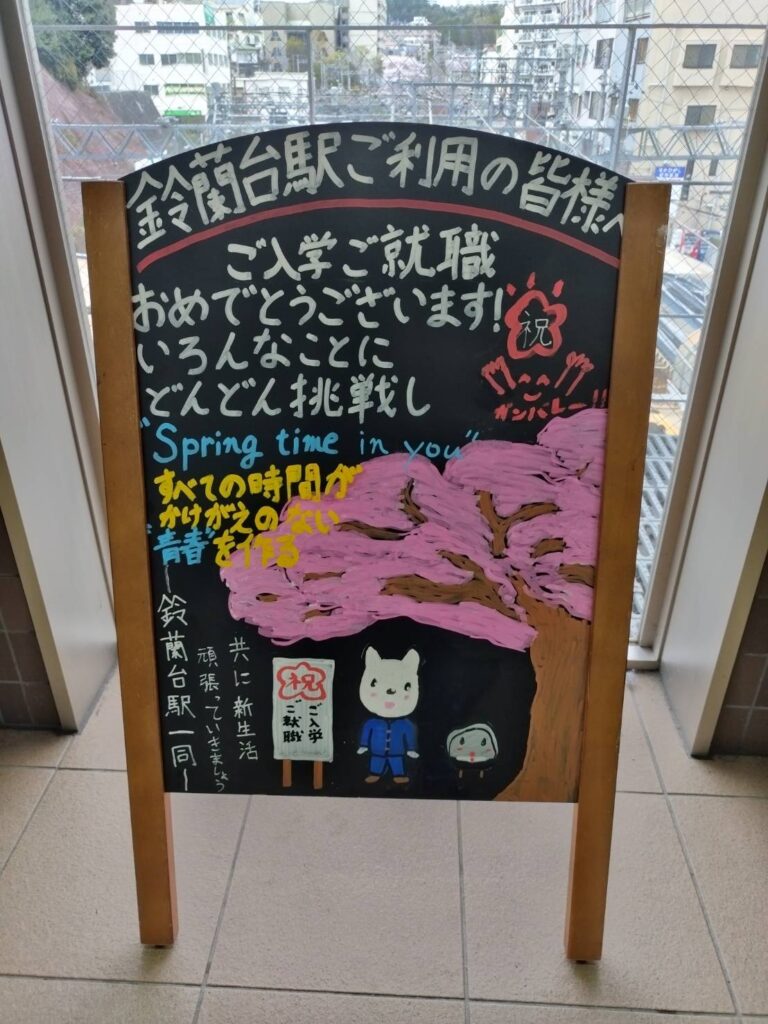 鈴蘭台駅ご利用の皆様へ
ご入学ご就職
おめでとうございます!
いろんなことに
どんどん挑戦し
祝
ここ
ガンバレー!!
"Spring time in you"
すべての時間が
かけがえのない
"青春"を作る
―鈴蘭台駅一同―
共に新生活
頑張っていきましょう
祝
ご入学
ご就職